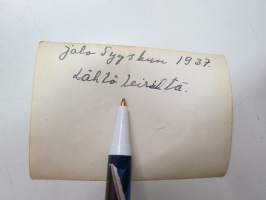 jalo Syyskuu 1937.
Lähtö leiriltä.